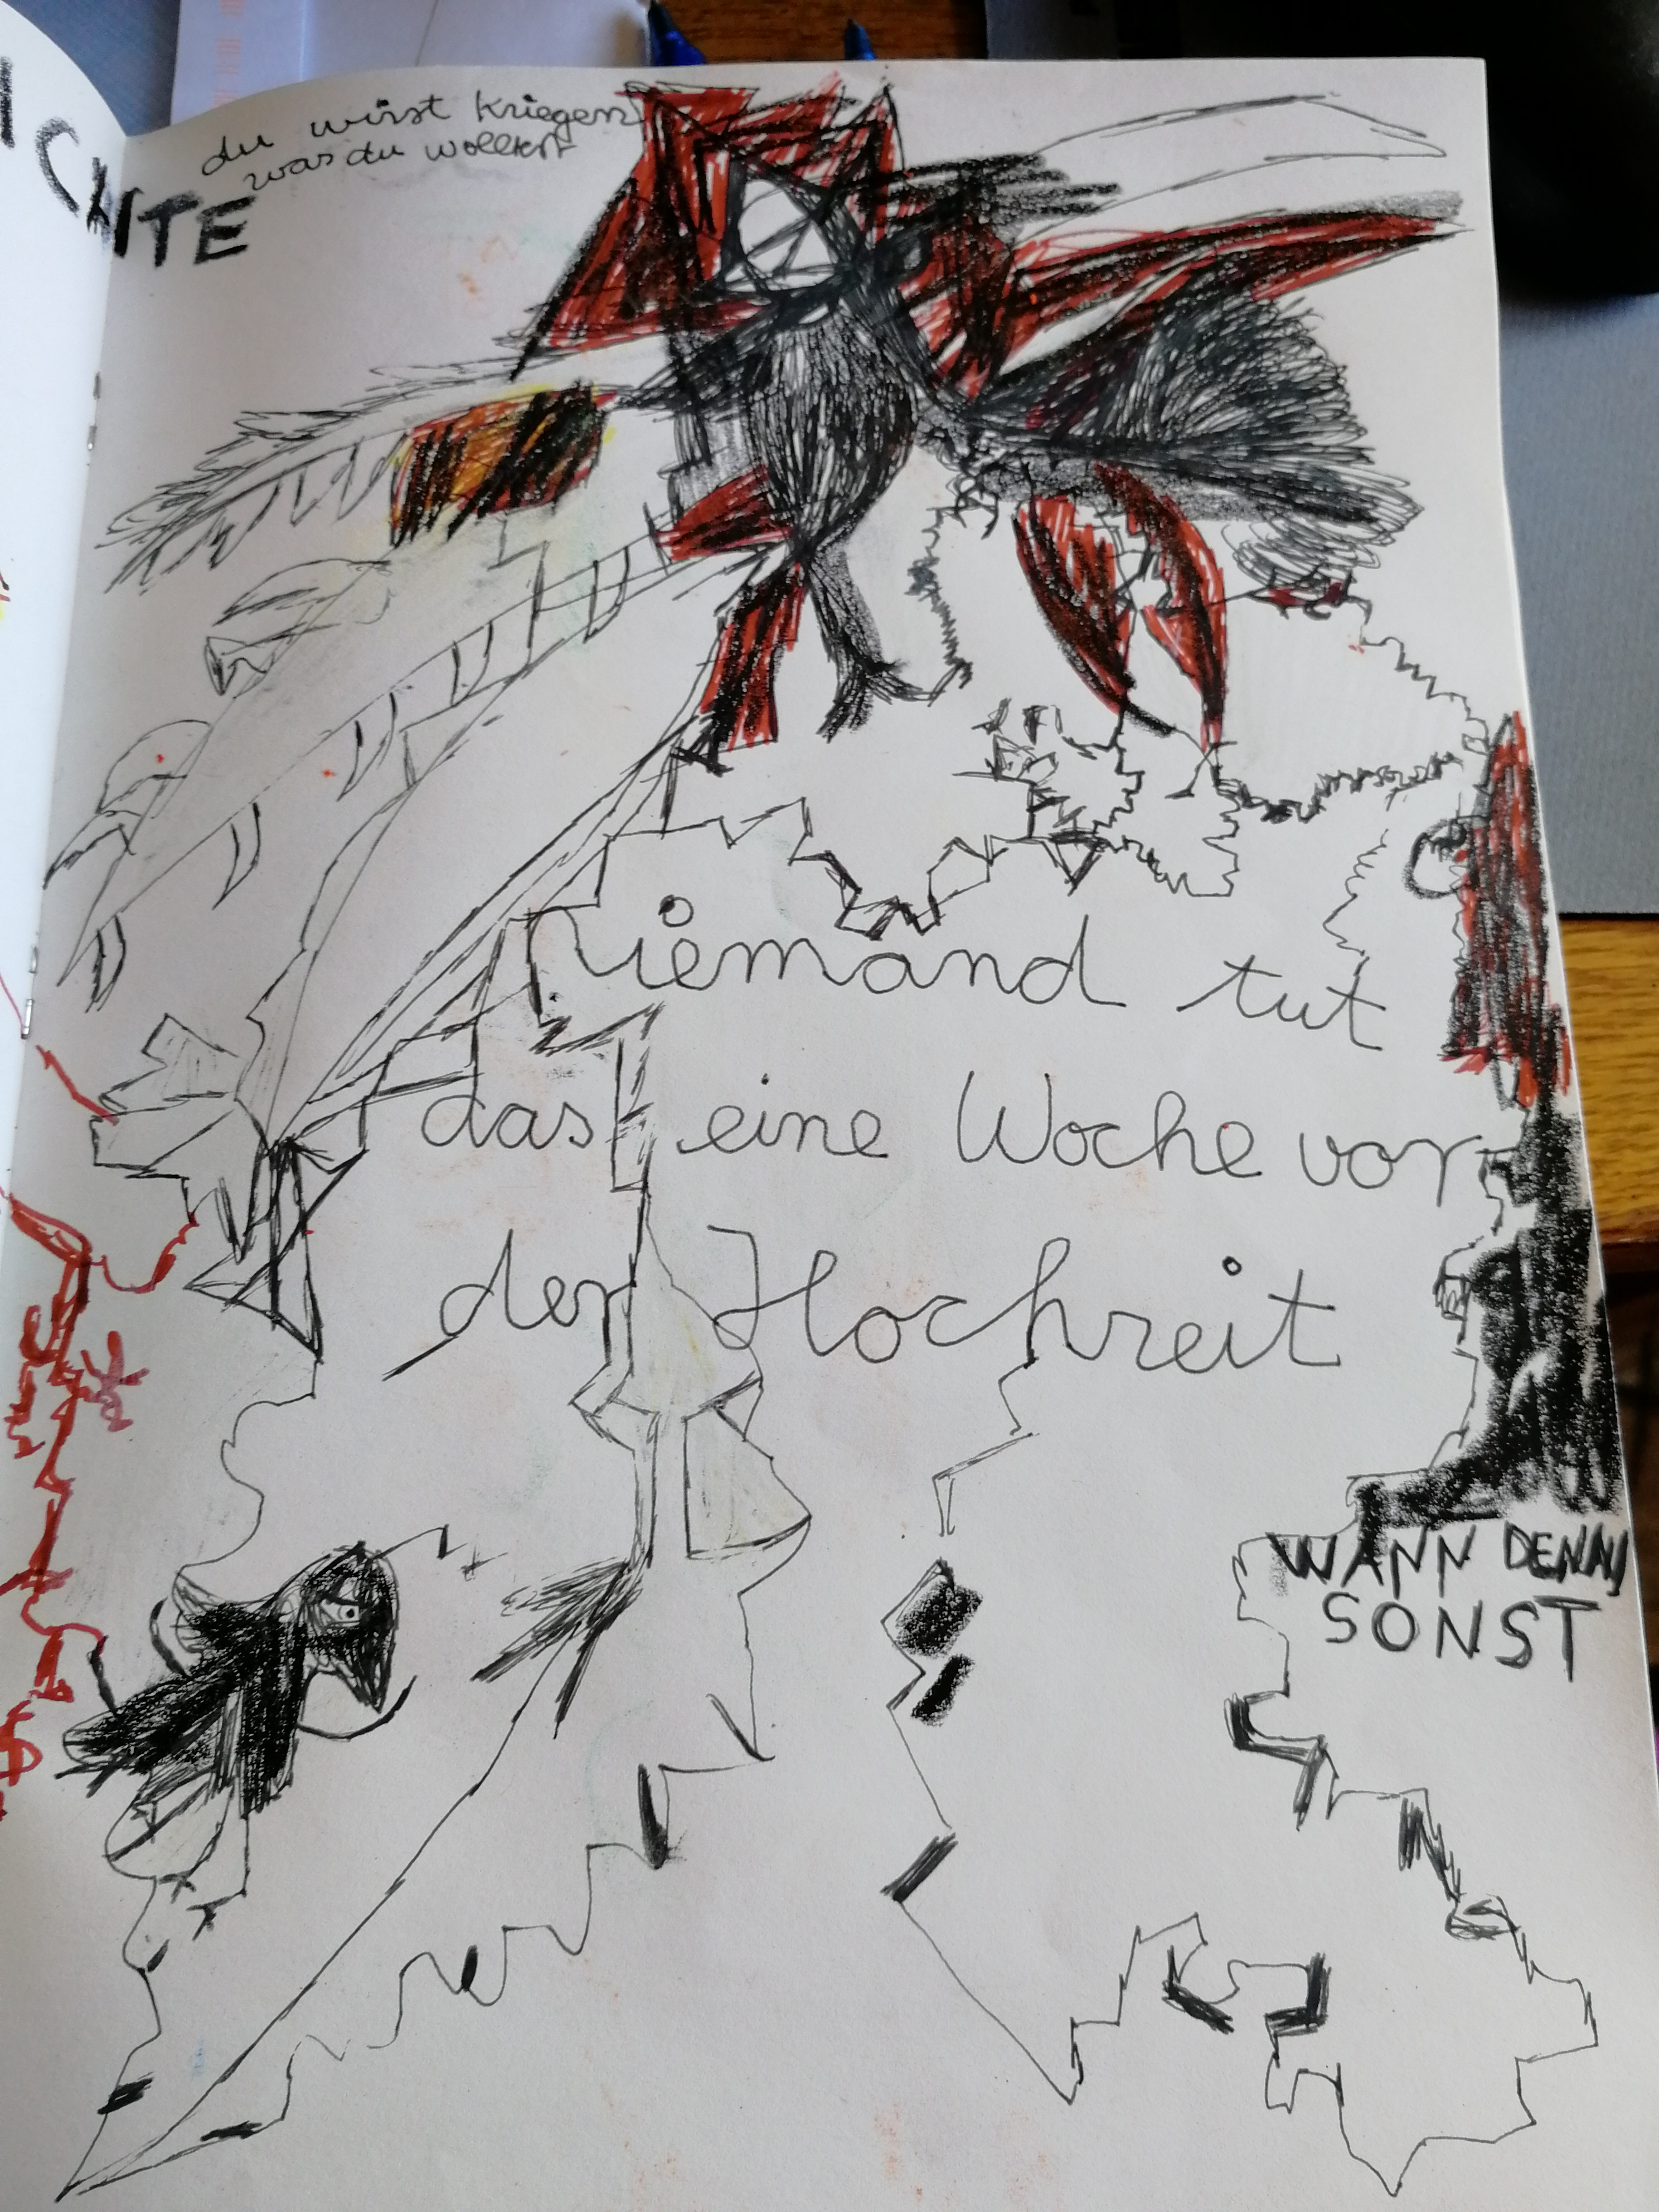 du wirst kriegen
was du wolltest
ICHTE
niemand tut
das eine Woche vor
der Hochzeit
WANN DENN
SONST